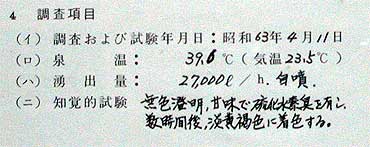 4 調査項目
(イ) 調査および試験年月日：昭和63年4月11日
(ロ) 泉温： 39.6 ℃ (気温23.5℃)
(ハ) 湧出量： 27,000ℓ/h. 自噴.
(ニ) 知覚的試験 無色澄明,甘味で硫化水素臭を有し
数時間後,淡黄褐色に着色する。